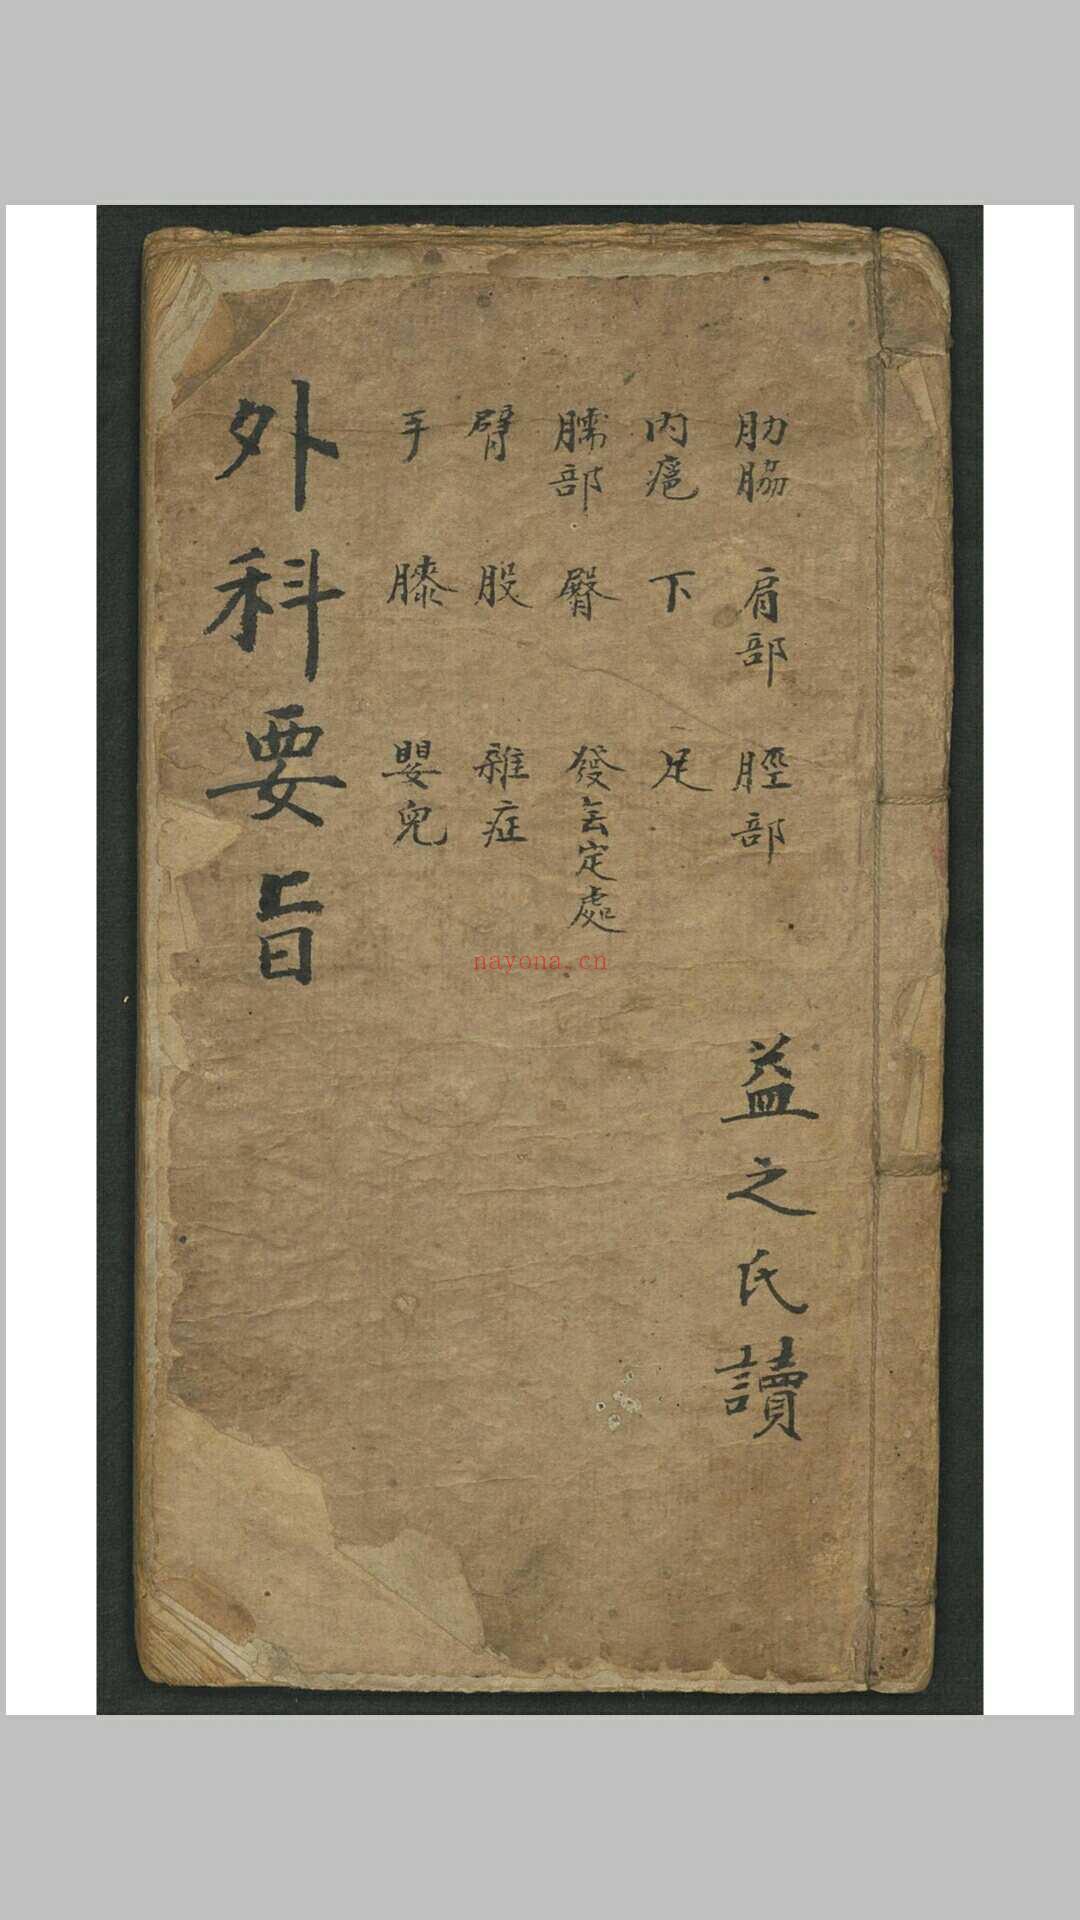 肋脇 肩部 脛部
內癰 下 足
臑部 臀 發無定處
臂 股 雜症
手 膝 嬰兒
外科要旨
益之氏讀
nayona.cn